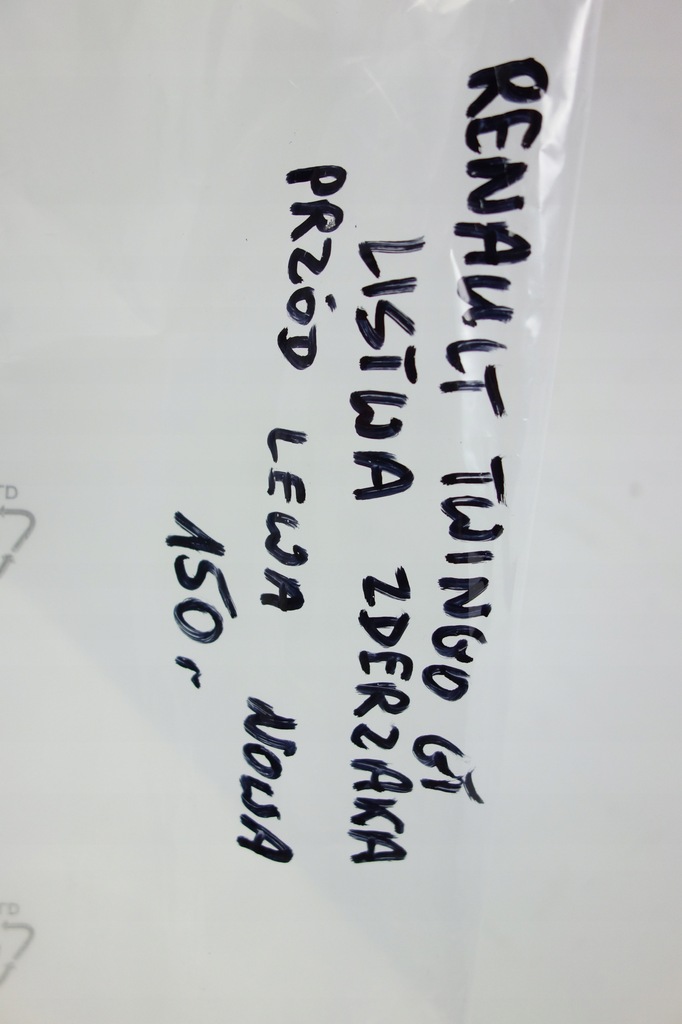 RENAULT TWINGO GT
LISTWA ZDERZAKA
PRZÓD LEWA NOWA
150,-